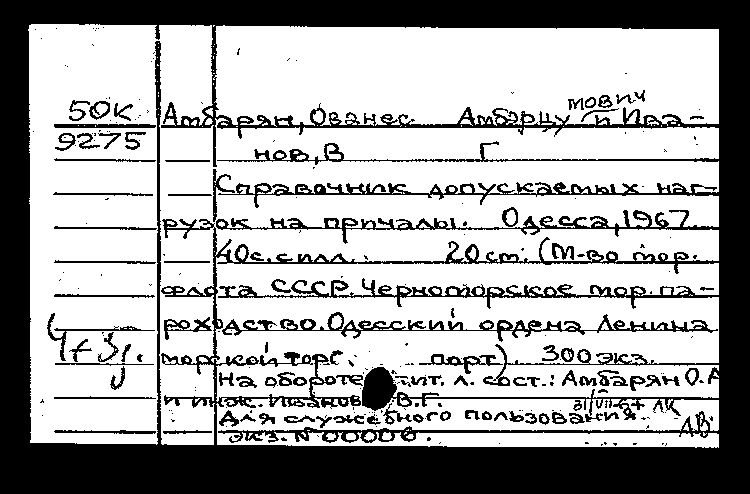 50К
9275
Амбарян, Ованес Амбарцумович и Ива-
нов, В Г
Справочник допускаемых наг-
рузок на причалы. Одесса, 1967
40с. с илл. 20 см. (М-во мор.
флота СССР. Черноморское мор. па-
роходство. Одесский ордена Ленина
морской торг. порт) 300 экз.
На обороте тит. л. сост.: Амбарян О.А
и инж. Иванов В.Г.
31/VII-67 ЛК
Для служебного пользования.
экз. N 00006.
АВ.